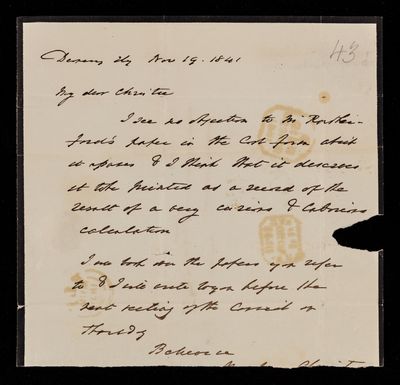 43
Nov 19. 1841
My dear Christie
I see no objection to Mr Ruther-
ford's paper in the form which
it appears & I think that it deserves
to be printed as a record of the
result of a very curious & laborious
calculation
I will look over the papers you refer
to & I will write to you before the
next meeting of the Council on
Thursday
Believe me